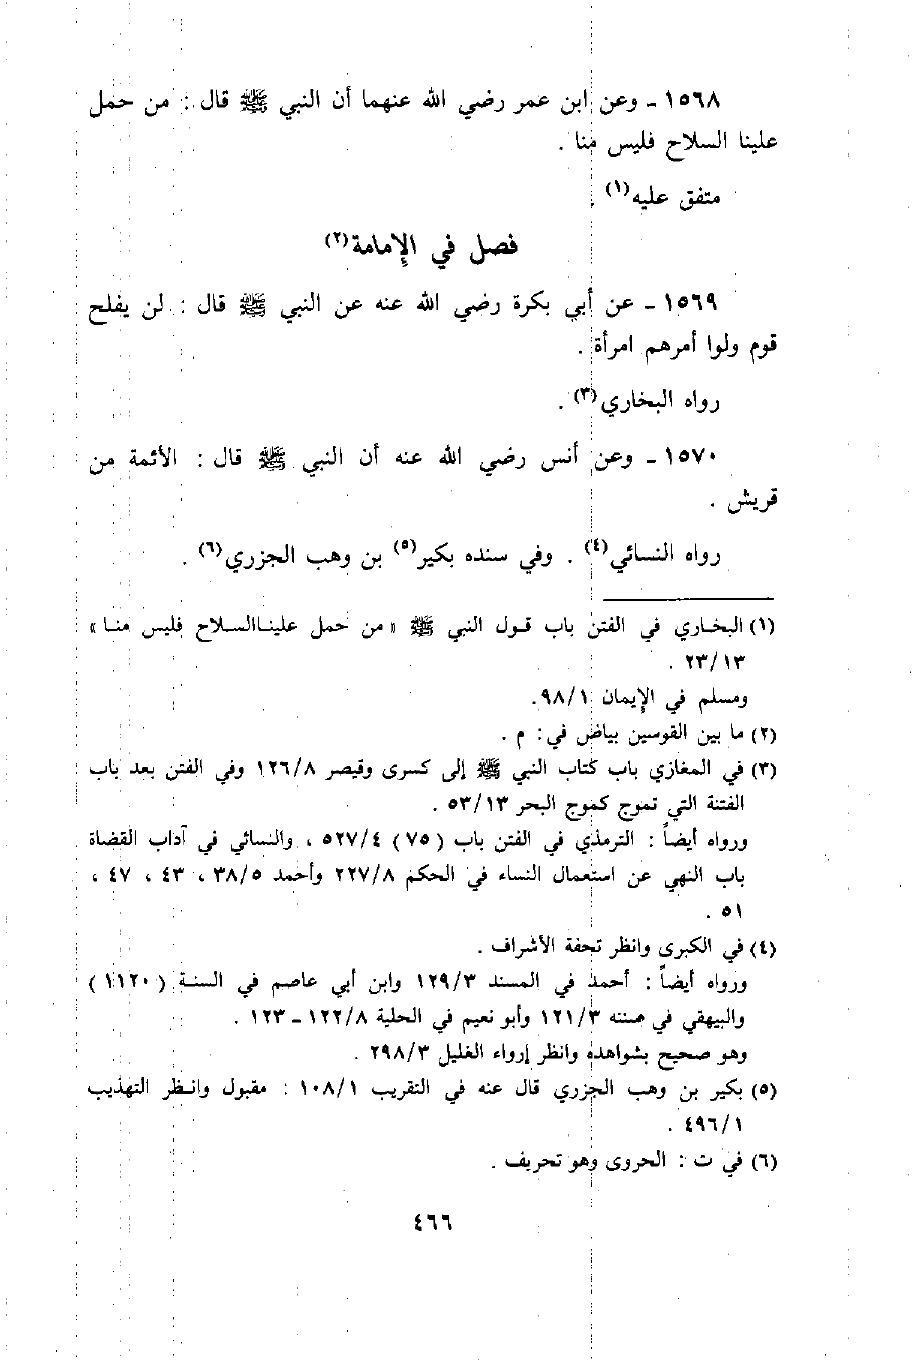 ١٥٦٨ ـ وعن ابن عمر رضي الله عنهما أن النبي ﷺ قال : من حمل
علينا السلاح فليس منا .
متفق عليه(١) .
فصل في الإمامة(٢)
١٥٦٩ ـ عن أبي بكرة رضي الله عنه عن النبي ﷺ قال : لن يفلح
قوم ولوا أمرهم امرأة .
رواه البخاري(٣) .
١٥٧٠ ـ وعن أنس رضي الله عنه أن النبي ﷺ قال : الأئمة من
قريش .
رواه النسائي(٤) . وفي سنده بكير(٥) بن وهب الجزري(٦) .
(١) البخاري في الفتن باب قول النبي ﷺ « من حمل علينا السلاح فليس منا »
٢٣/١٣ .
ومسلم في الإيمان ٩٨/١.
(٢) ما بين القوسين بياض في: م .
(٣) في المغازي باب كتاب النبي ﷺ إلى كسرى وقيصر ١٢٦/٨ وفي الفتن بعد باب
الفتنة التي تموج كموج البحر ٥٣/١٣ .
ورواه أيضاً : الترمذي في الفتن باب (٧٥) ٥٢٧/٤ ، والنسائي في آداب القضاة
باب النهي عن استعمال النساء في الحكم ٢٢٧/٨ وأحمد ٣٨/٥ ، ٤٣ ، ٤٧ ،
٥١ .
(٤) في الكبرى وانظر تحفة الأشراف .
ورواه أيضاً : أحمد في المسند ١٢٩/٣ وابن أبي عاصم في السنة (١١٢٠)
والبيهقي في سننه ١٢١/٣ وأبو نعيم في الحلية ١٢٢/٨ ـ ١٢٣ .
وهو صحيح بشواهده وانظر إرواء الغليل ٢٩٨/٣ .
(٥) بكير بن وهب الجزري قال عنه في التقريب ١٠٨/١ : مقبول وانظر التهذيب
٤٩٦/١ .
(٦) في ت : الحروى وهو تحريف .
٤٦٦